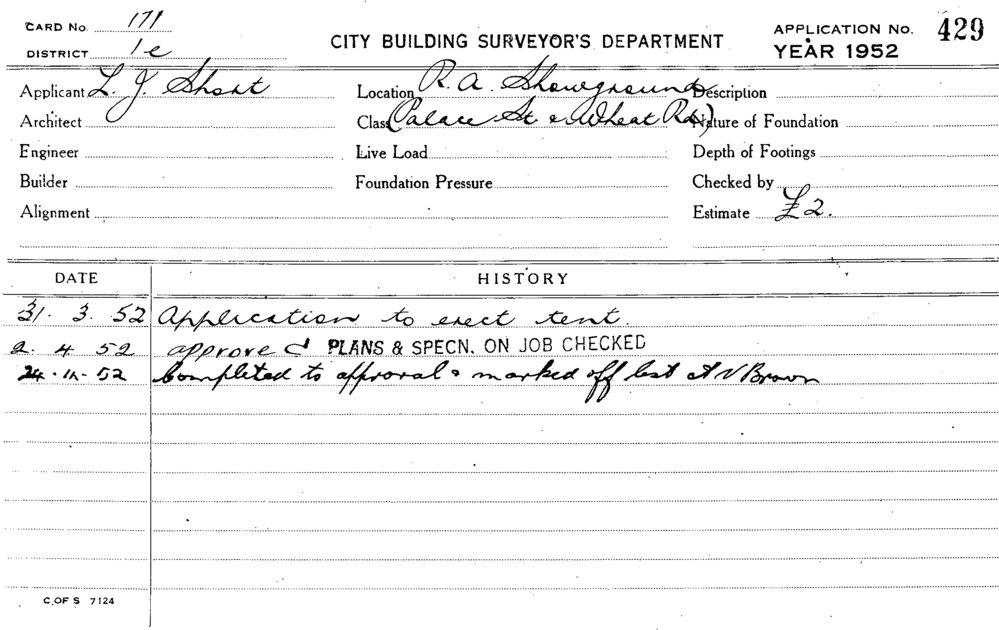 CARD No. 171
DISTRICT 1e
CITY BUILDING SURVEYOR'S DEPARTMENT
APPLICATION No. 429
YEAR 1952
Applicant L. J. Short
Location R. A. Showground
Description
Architect
Class (Palace St & Wheat Rd)
Nature of Foundation
Engineer
Live Load
Depth of Footings
Builder
Foundation Pressure
Checked by
Alignment
Estimate £2.
DATE HISTORY
31. 3. 52 Application to erect tent.
2. 4. 52 approved PLANS & SPECN. ON JOB CHECKED
24. 52 Completed to approval & marked off list A V Brown
C.OF S 7124